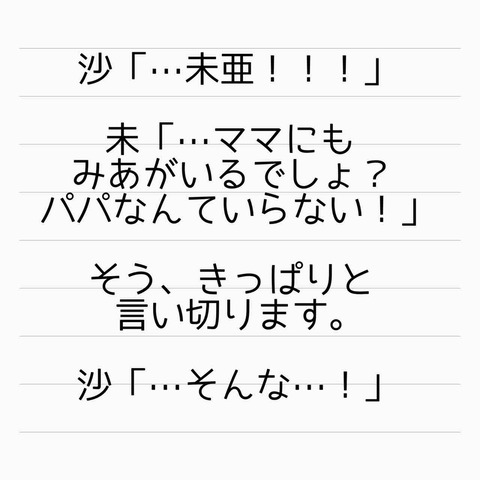 沙「…未亜！！！」
未「…ママにも
みあがいるでしょ？
パパなんていらない！」
そう、きっぱりと
言い切ります。
沙「…そんな…！」